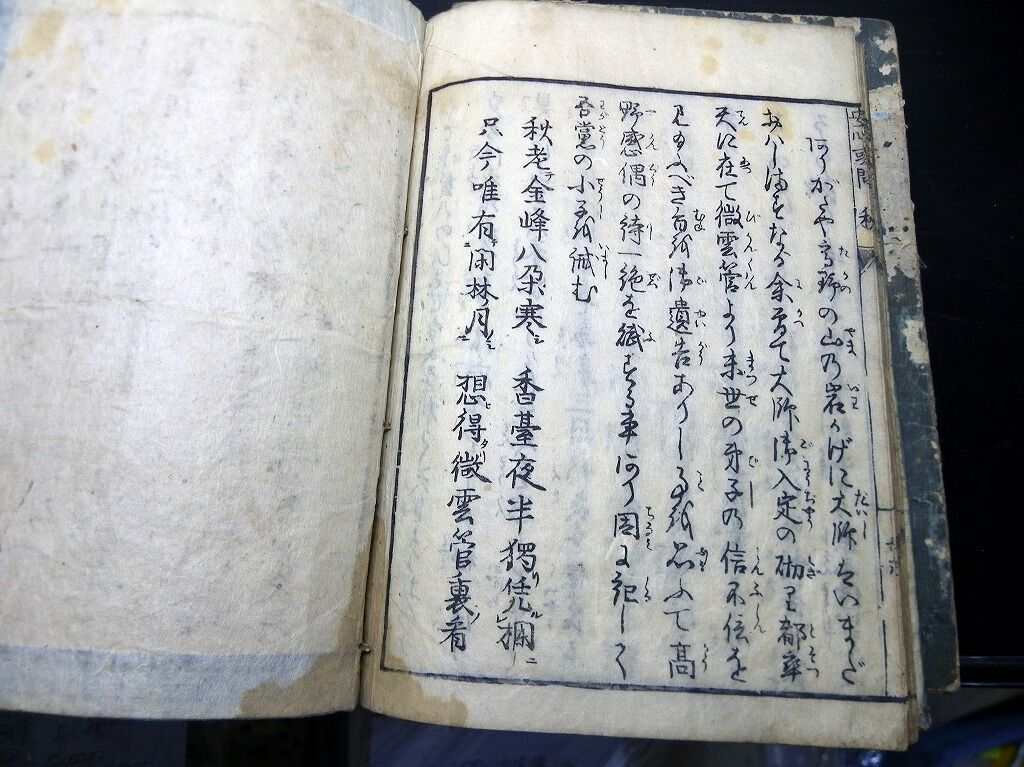 ありがたや高野の山乃岩かげに大師はいまだ
おハしますなる余曽て大師御入定の砌り都率
天に在て微雲管より末世の弟子の信不信を
見たふべき旨を御遺告ありし事を思ふて高
野感偶の詩一絶を賦する事あり因に記しく
吾黨の小子を誡む
秋老金峰八朶寒 香臺夜半獨凭欄
只今唯有閑林月 想得微雲管裏看